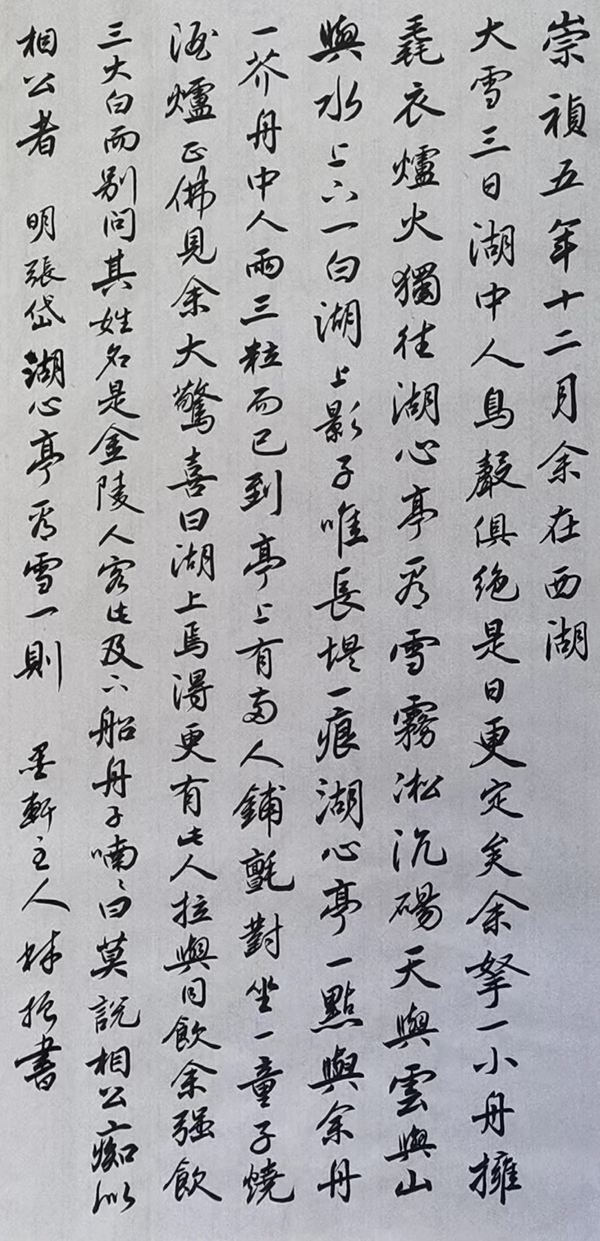 崇禎五年十二月余在西湖
大雪三日湖中人鳥聲俱絶是日更定矣余拏一小舟擁
毳衣爐火獨往湖心亭看雪霧凇沆碭天與雲與山
與水上下一白湖上影子唯長堤一痕湖心亭一點與余舟
一芥舟中人兩三粒而已到亭上有兩人鋪氈對坐一童子燒
酒爐正沸見余大驚喜曰湖上焉得更有此人拉與同飲余强飲
三大白而别問其姓名是金陵人客此及下船舟子喃々曰莫說相公痴似
相公者 明張岱湖心亭看雪一則 墨軒主人林振書